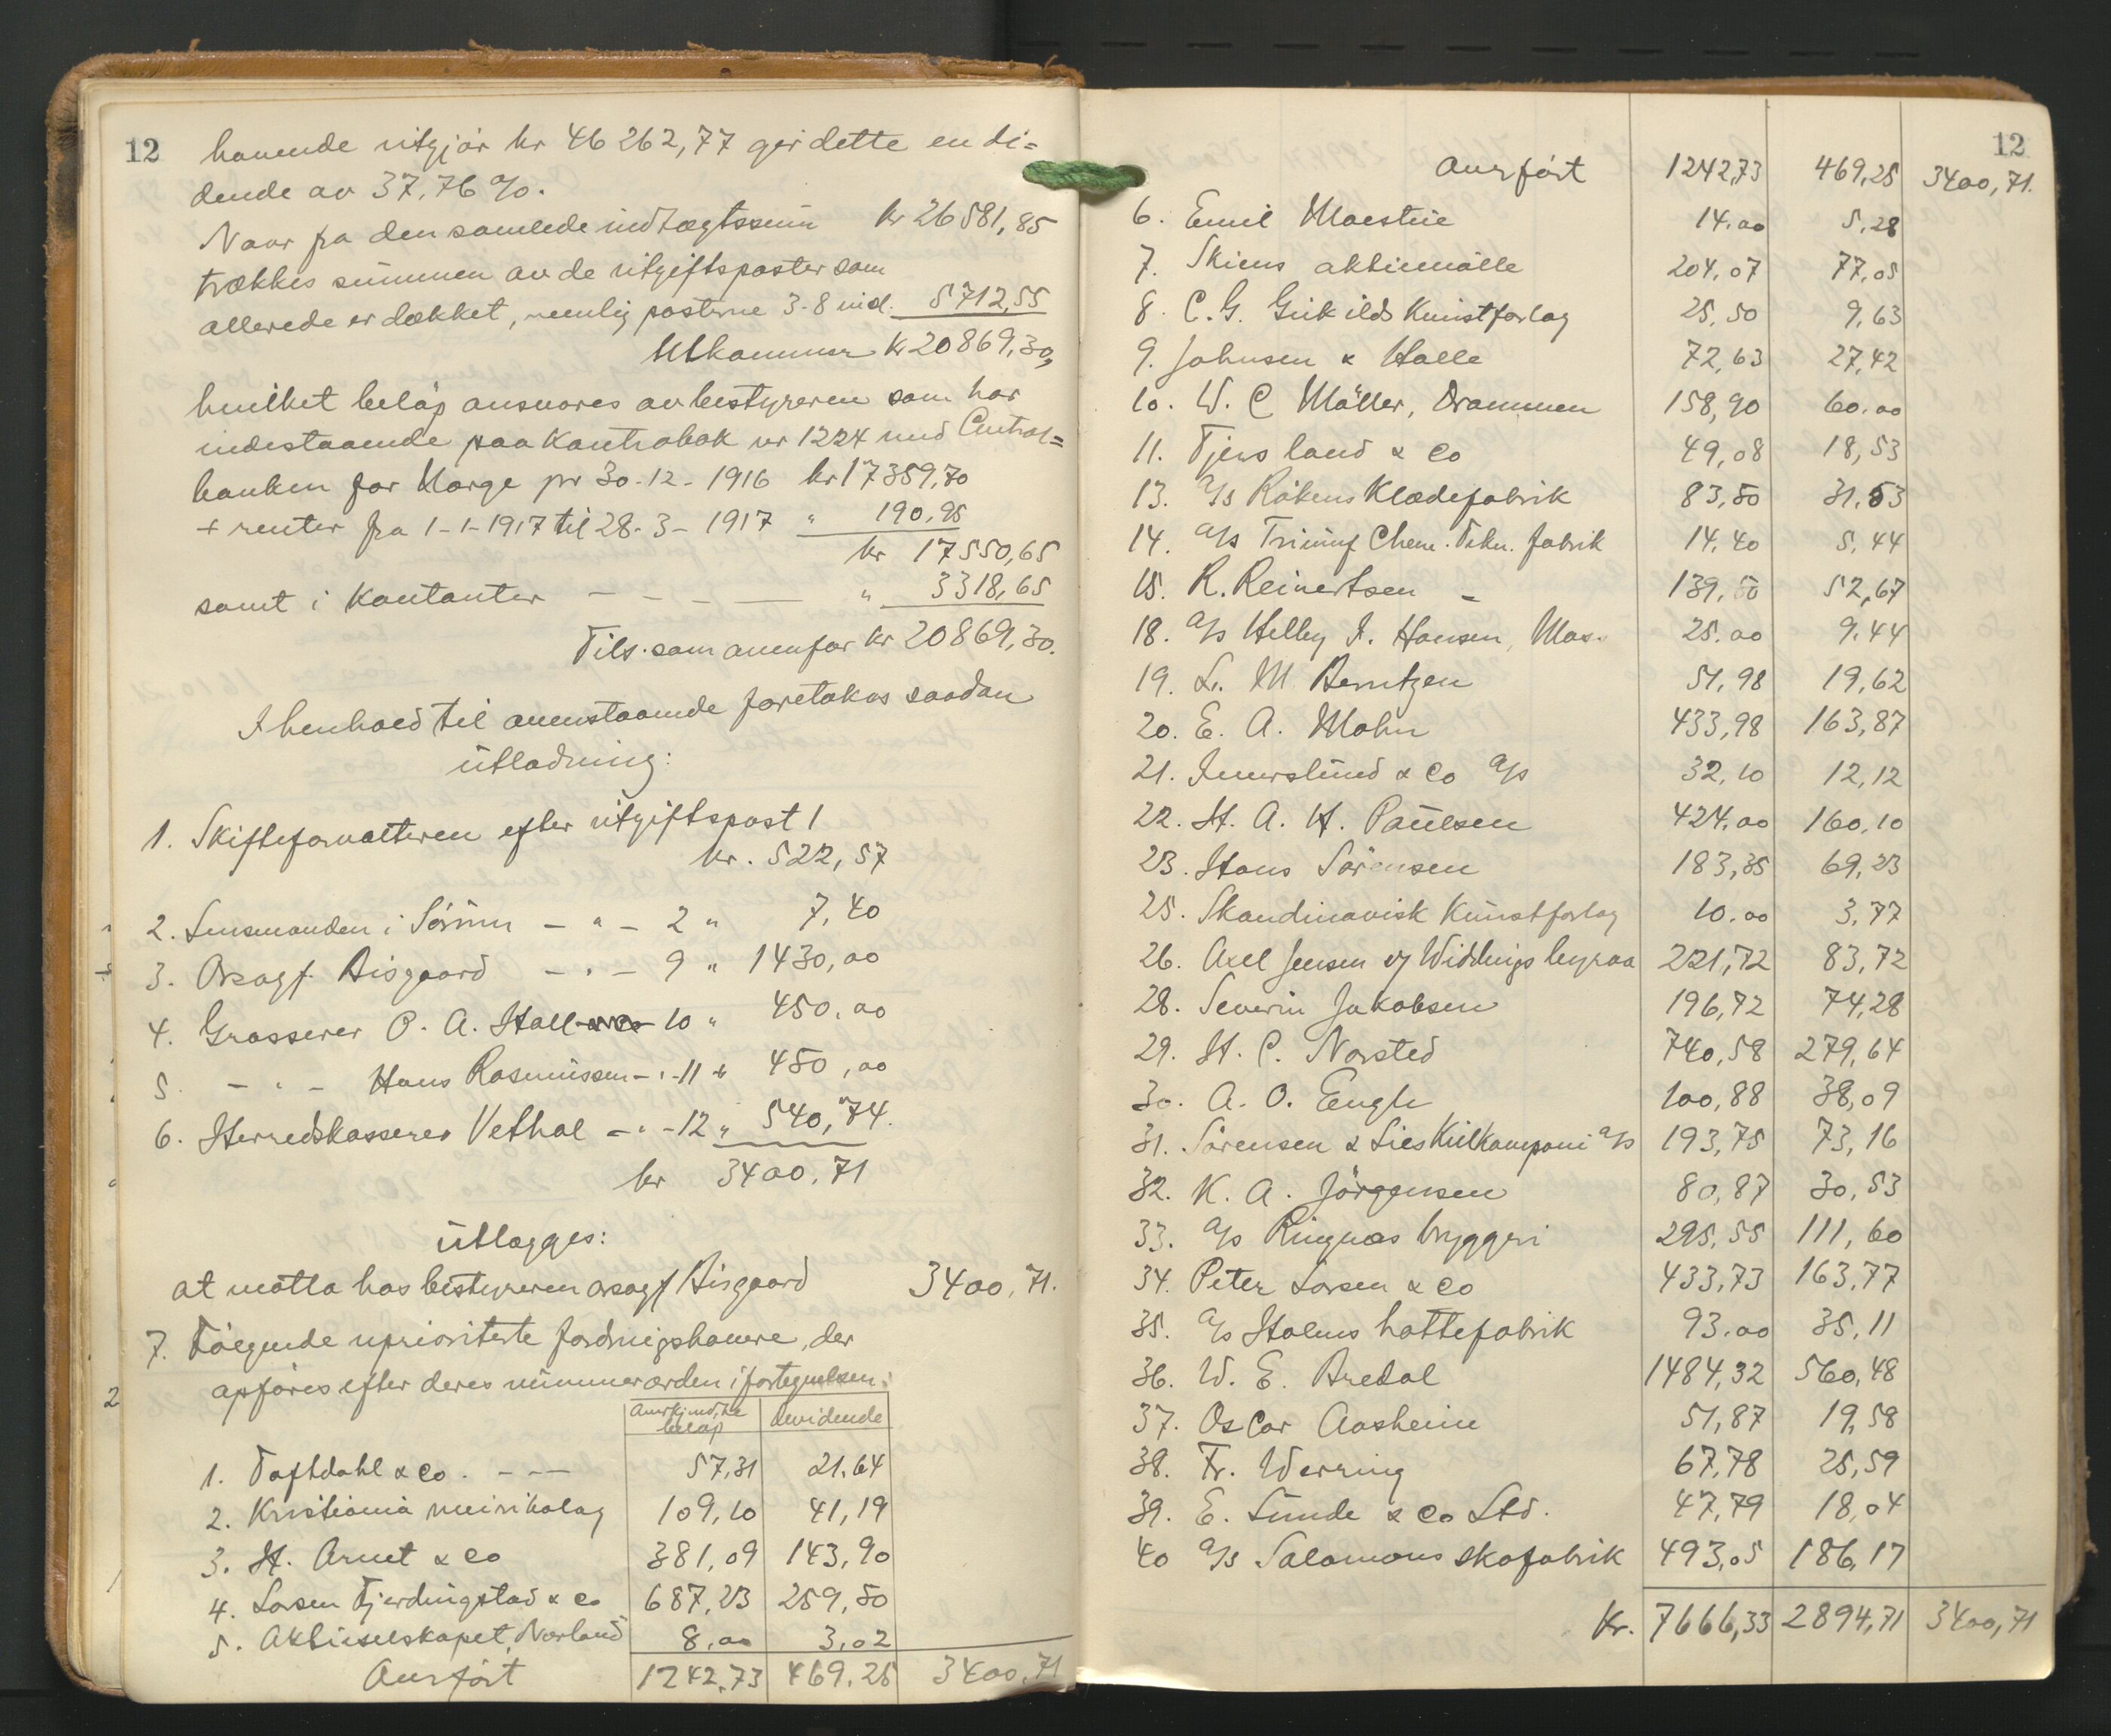 12
havende utgjør kr 46 262,77 gir dette en di=
dende av 37,76 %.
Naar fra den samlede indtægtssum kr 26 581,85
trækkes summen av de utgiftsposter som
allerede er dækket, nemlig posterne 3-8 incl. 5712,55
Utkommer kr 20 869,30,
hvilket beløp ansvares av bestyreren som har
indestaaende paa Kontrabok nr 1224 med Central=
banken for Norge pr 30-12-1916 kr 17 359,70
+ renter fra 1-1-1917 til 28-3-1917 " 190,95
kr 17 550,65
samt i kontanter — — — — " 3318,65
Tils. som ovenfor kr 20 869,30.
I henhold til ovenstaaende foretakes saadan
utlodning:
1. Skifteforvalteren efter utgiftspost 1
kr. 522,57
2. Lensmanden i Sørum - " - 2 " 7,40
3. Orsagf. Bisgaard - " - 9 " 1430,00
4. Grosserer O. A. Hall 10 " 450,00
5. - " - Hans Rasmussen - " - 11 " 450,00
6. Herredskasserer Vethal - " - 12 " 540,74.
kr 3400,71
Utlægges:
at motta hos bestyreren orsagf Bisgaard 3400,71.
7. Følgende uprioriterte fordringshavere, der
opføres efter deres nummerorden i fortegnelsen:
Anerkjendte beløp devidende
1. Toftdahl & Co. - - - 57,31 21,64
2. Kristiania meierikolag 109,10 41,19
3. H. Arnet & Co 381,09 143,90
4. Larsen Fjerdingstad & Co 687,23 259,50
5. Aktieselskapet Norland 8,00 3,02
Overført 1242,73 469,25 3400,71
12
Overført 1242,73 469,25 3400,71.
6. Emil Moestue 14,00 5,28
7. Skiens aktiemølle 204,07 77,05
8. C. G. Grikilds Kunstforlag 25,50 9,63
9. Johnsen & Halle 72,63 27,42
10. W. C Møller, Drammen 158,90 60,00
11. Tjersland & Co 49,08 18,53
13. A/s Røkens Klædefabrik 83,50 31,53
14. A/s Triumf Chem. Tekn. fabrik 14,40 5,44
15. R. Reinertsen - 139,50 52,67
18. A/s Helly J. Hansen, Mos. 25,00 9,44
19. L. M. Berntzen 51,98 19,62
20. E. A. Mohn 433,98 163,87
21. Immerslund & Co A/s 32,10 12,12
22. H. A. H. Paulsen 424,00 160,10
23. Hans Sørensen 183,35 69,23
25. Skandinavisk Kunstforlag 10,00 3,77
26. Axel Jensen v/ Widdings byraa 221,72 83,72
28. Severin Jakobsen 196,72 74,28
29. H. C. Norsted 740,58 279,64
30. A. O. Engh 100,88 38,09
31. Sørensen & Lies Kulkompani A/s 193,75 73,16
32. K. A. Jørgensen 80,87 30,53
33. A/s Ringnæs bryggeri 295,55 111,60
34. Peter Larsen & Co 433,73 163,77
35. A/s Holms hattefabrik 93,00 35,11
36. W. E. Bredal 1484,32 560,48
37. Oscar Aasheim 51,87 19,58
38. Fr. Werring 67,78 25,59
39. E. Sunde & Co Ltd. 47,79 18,04
40 A/s Salomons skofabrik 493,05 186,17
Kr. 7666,33 2894,71 3400,71